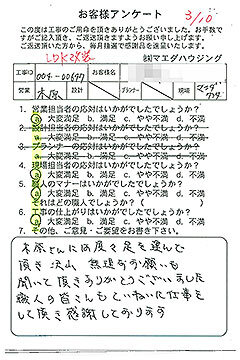 お客様アンケート
3/10
この度は工事のご用命を頂きありがとうございました。お手数で
すがご記入頂き、ご返送頂けますようお願い申し上げます。
ご返送頂いた方から、毎月抽選で感謝品を進呈いたします。
LDK改装
㈱マエダハウジング
工事ID 004-00649 お客様名
営業 木原 設計 プランナー 現場 マエダ
1. 営業担当者の応対はいかがでしたでしょうか?
a. 大変満足 b. 満足 c. やや不満 d. 不満
2. 設計担当者の応対はいかがでしたでしょうか?
a. 大変満足 b. 満足 c. やや不満 d. 不満
3. プランナーの応対はいかがでしたでしょうか?
a. 大変満足 b. 満足 c. やや不満 d. 不満
4. 現場担当者の応対はいかがでしたでしょうか?
a. 大変満足 b. 満足 c. やや不満 d. 不満
5. 職人のマナーはいかがでしたでしょうか?
a. 大変満足 b. 満足 c. やや不満 d. 不満
それはどの職人でしょうか?( )
6. 工事の仕上がりはいかがでしたでしょうか?
a. 大変満足 b. 満足 c. やや不満 d. 不満
7. その他、ご意見・ご要望をお書き下さい。
木原さんには度々足を運んで
頂き沢山 無理なお願いも
聞いて頂きありがとうございました
職人の皆さんもていねいに仕事を
して頂き感謝しております